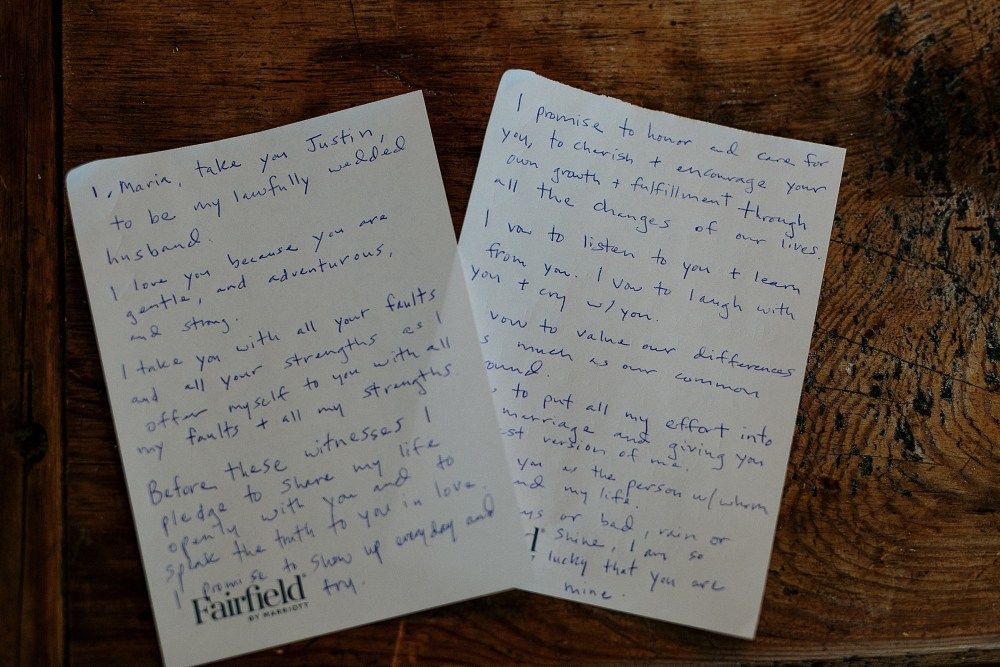 I, Maria, take you Justin,
to be my lawfully wedded
husband.
I love you because you are
gentle, and adventurous,
and strong.
I take you with all your faults
and all your strengths as I
offer myself to you with all
my faults + all my strengths.
Before these witnesses I
pledge to share my life
openly with you and to
speak the truth to you in love.
I promise to show up everyday and
try.
Fairfield
BY MARRIOTT
I promise to honor and care for
you, to cherish + encourage your
own growth + fulfillment through
all the changes of our lives.
I vow to listen to you + learn
from you. I vow to laugh with
you + cry w/ you.
vow to value our differences
s much as our common
ound.
to put all my effort into
marriage and giving you
st version of me.
you as the person w/ whom
nd my life.
ys or bad, rain or
shine, I am so
lucky that you are
mine.
d